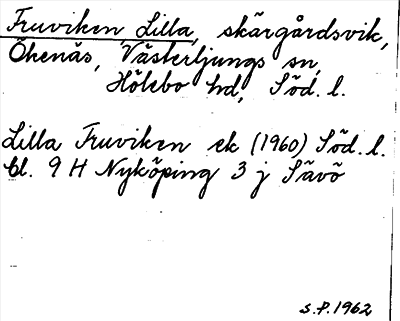 Fruviken, Lilla, skärgårdsvik,
Ökenäs, Västerljungs sn,
Hölebo hd, Söd. l.
Lilla Fruviken ek (1960) Söd. l.
bl. 9 H Nyköping 3 j Sävö
S.P. 1962